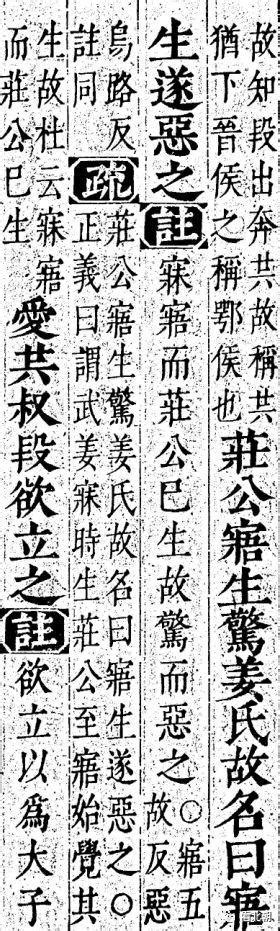 故知段出奔共故稱共
猶下晉侯之稱鄂侯也
莊公寤生驚姜氏故名曰寤
生遂惡之
註
寐寤而莊公巳生故驚而惡之
○寤五
故反惡
烏路反
註同
疏
莊公寤生驚姜氏故名曰寤生遂惡之○
正義曰謂武姜寐時生莊公至寤始覺其
生故杜云寐寤
而莊公巳生
愛共叔段欲立之
註
欲立以爲大子